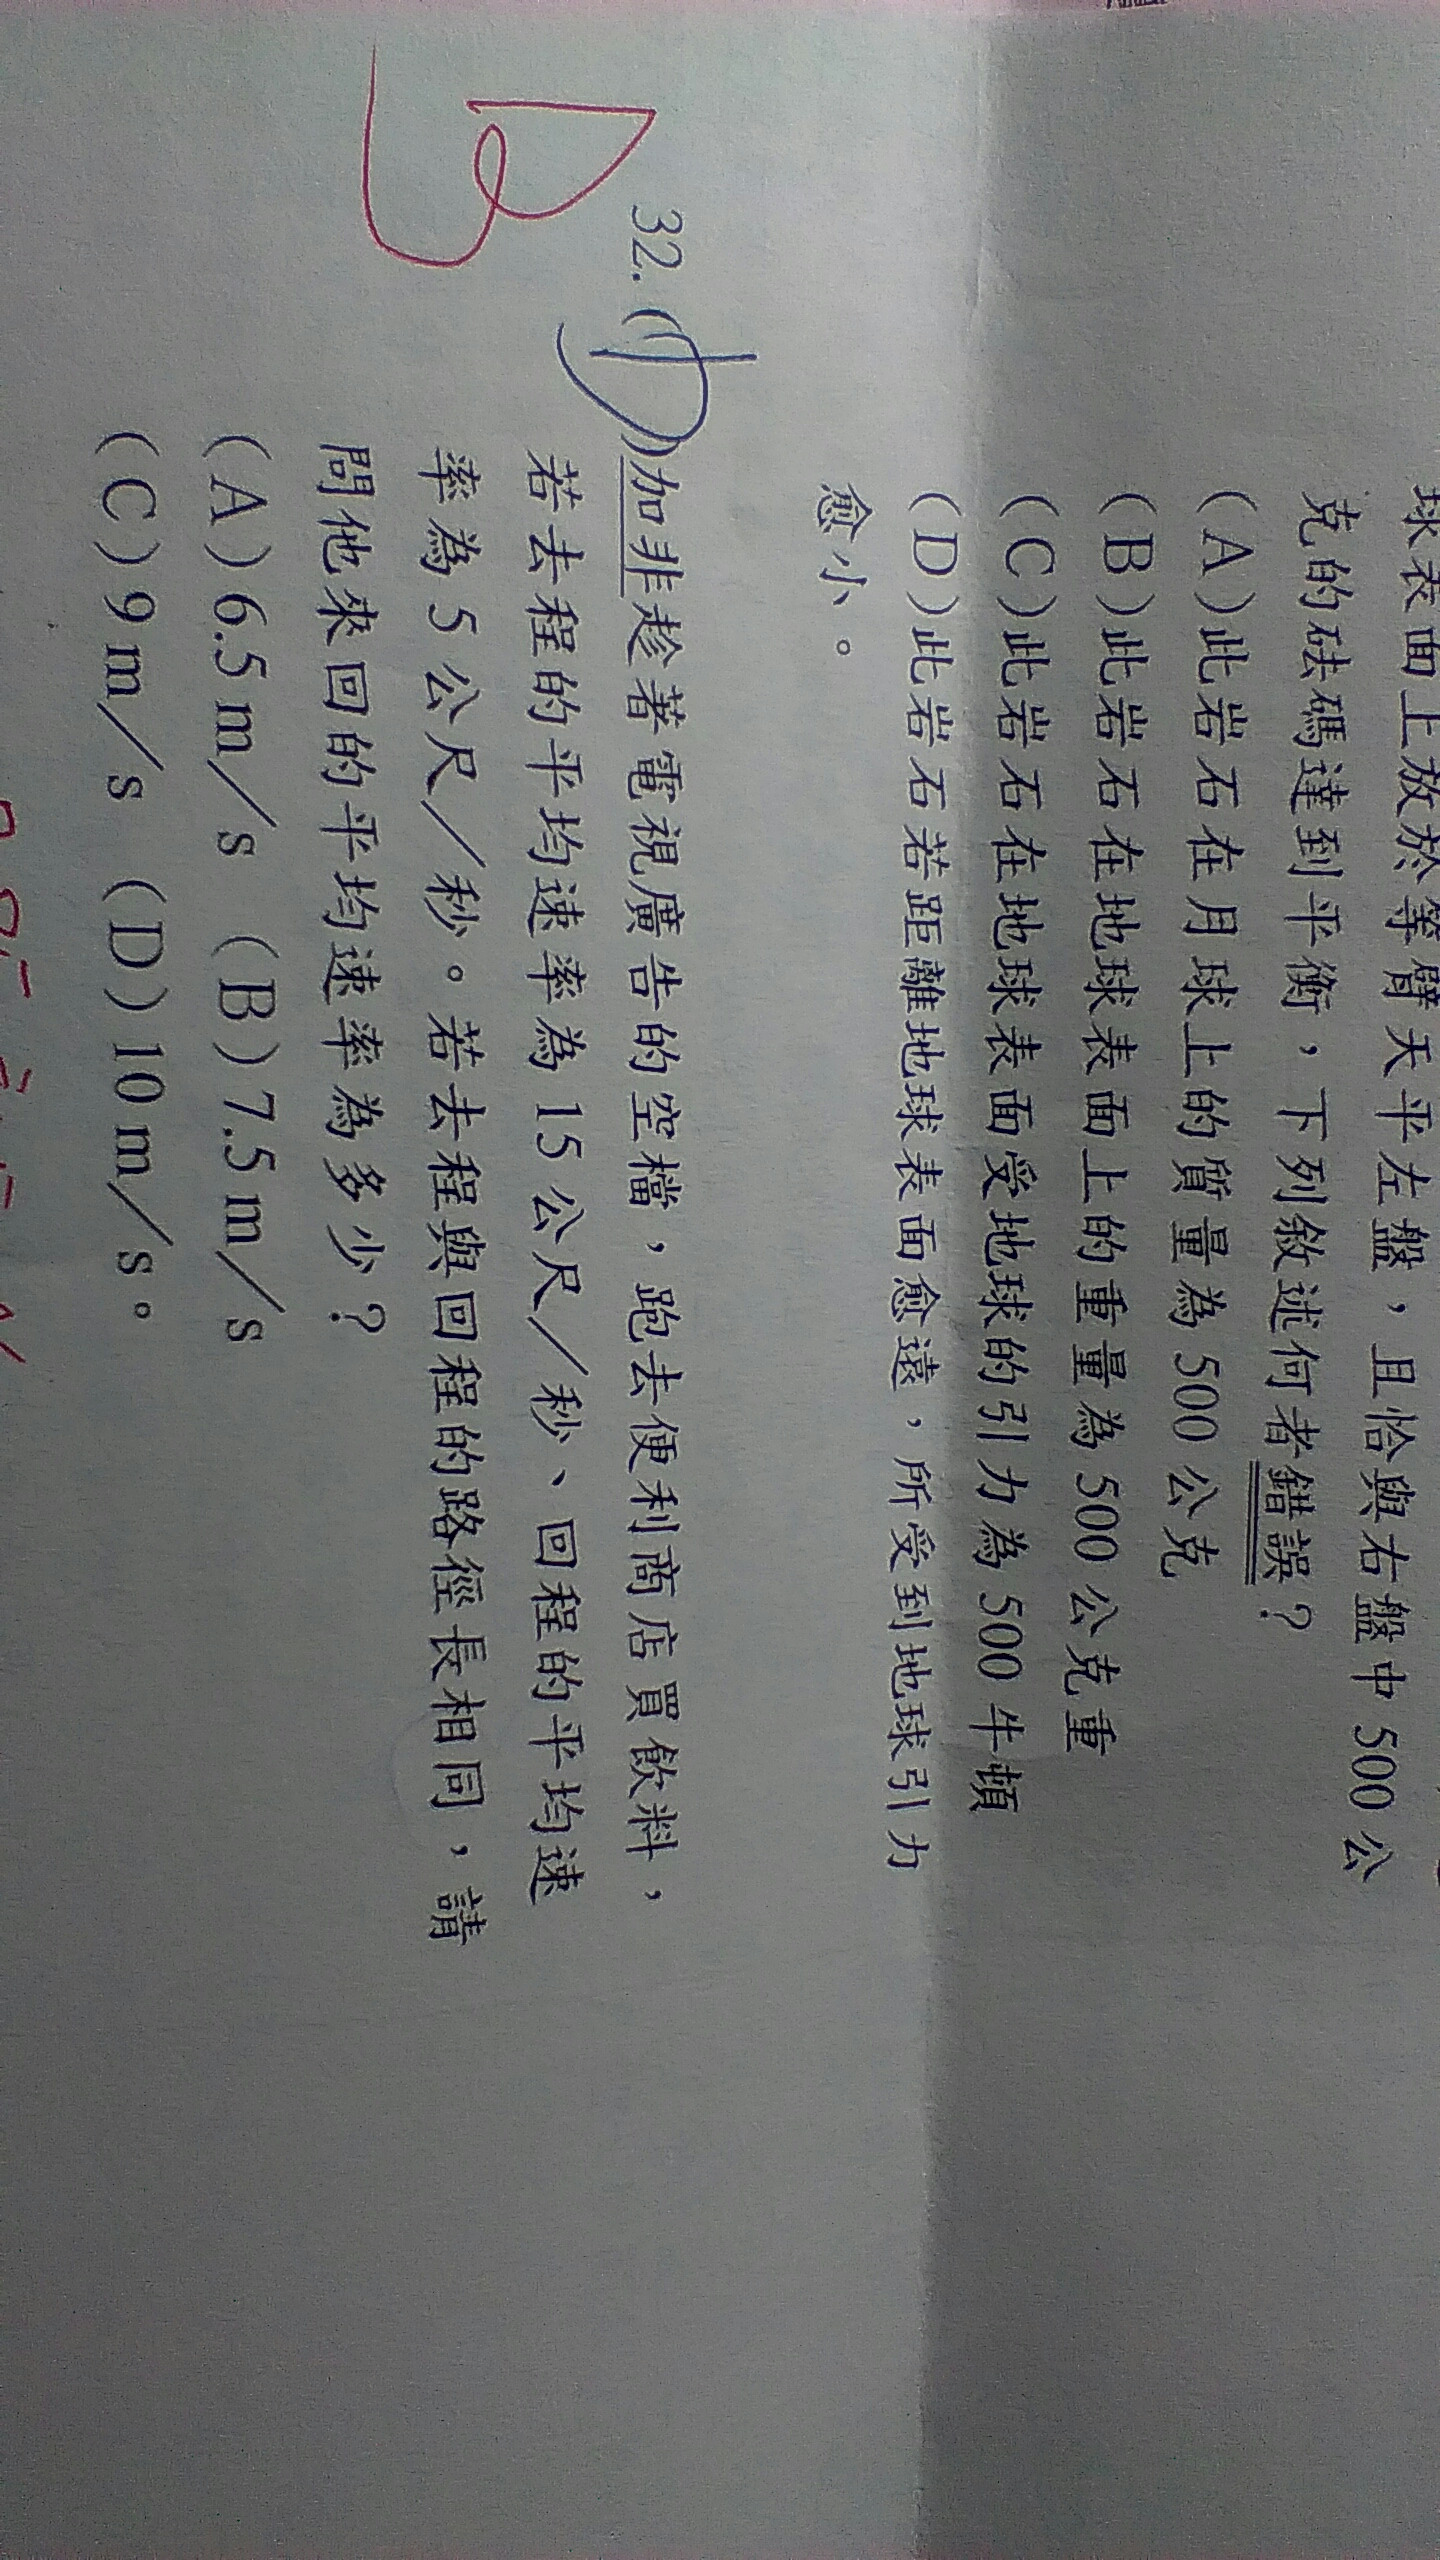 球表面上放於等臂天平左盤，且恰與右盤中 500 公
克的砝碼達到平衡，下列敘述何者錯誤？
(A)此岩石在月球上的質量為 500 公克
(B)此岩石在地球表面上的重量為 500 公克重
(C)此岩石在地球表面受地球的引力為 500 牛頓
(D)此岩石若距離地球表面愈遠，所受到地球引力
愈小。
B
32.(D)加非趁著電視廣告的空檔，跑去便利商店買飲料，
若去程的平均速率為 15 公尺／秒、回程的平均速
率為 5 公尺／秒。若去程與回程的路徑長相同，請
問他來回的平均速率為多少？
(A)6.5 m／s (B)7.5 m／s
(C)9 m／s (D)10 m／s。